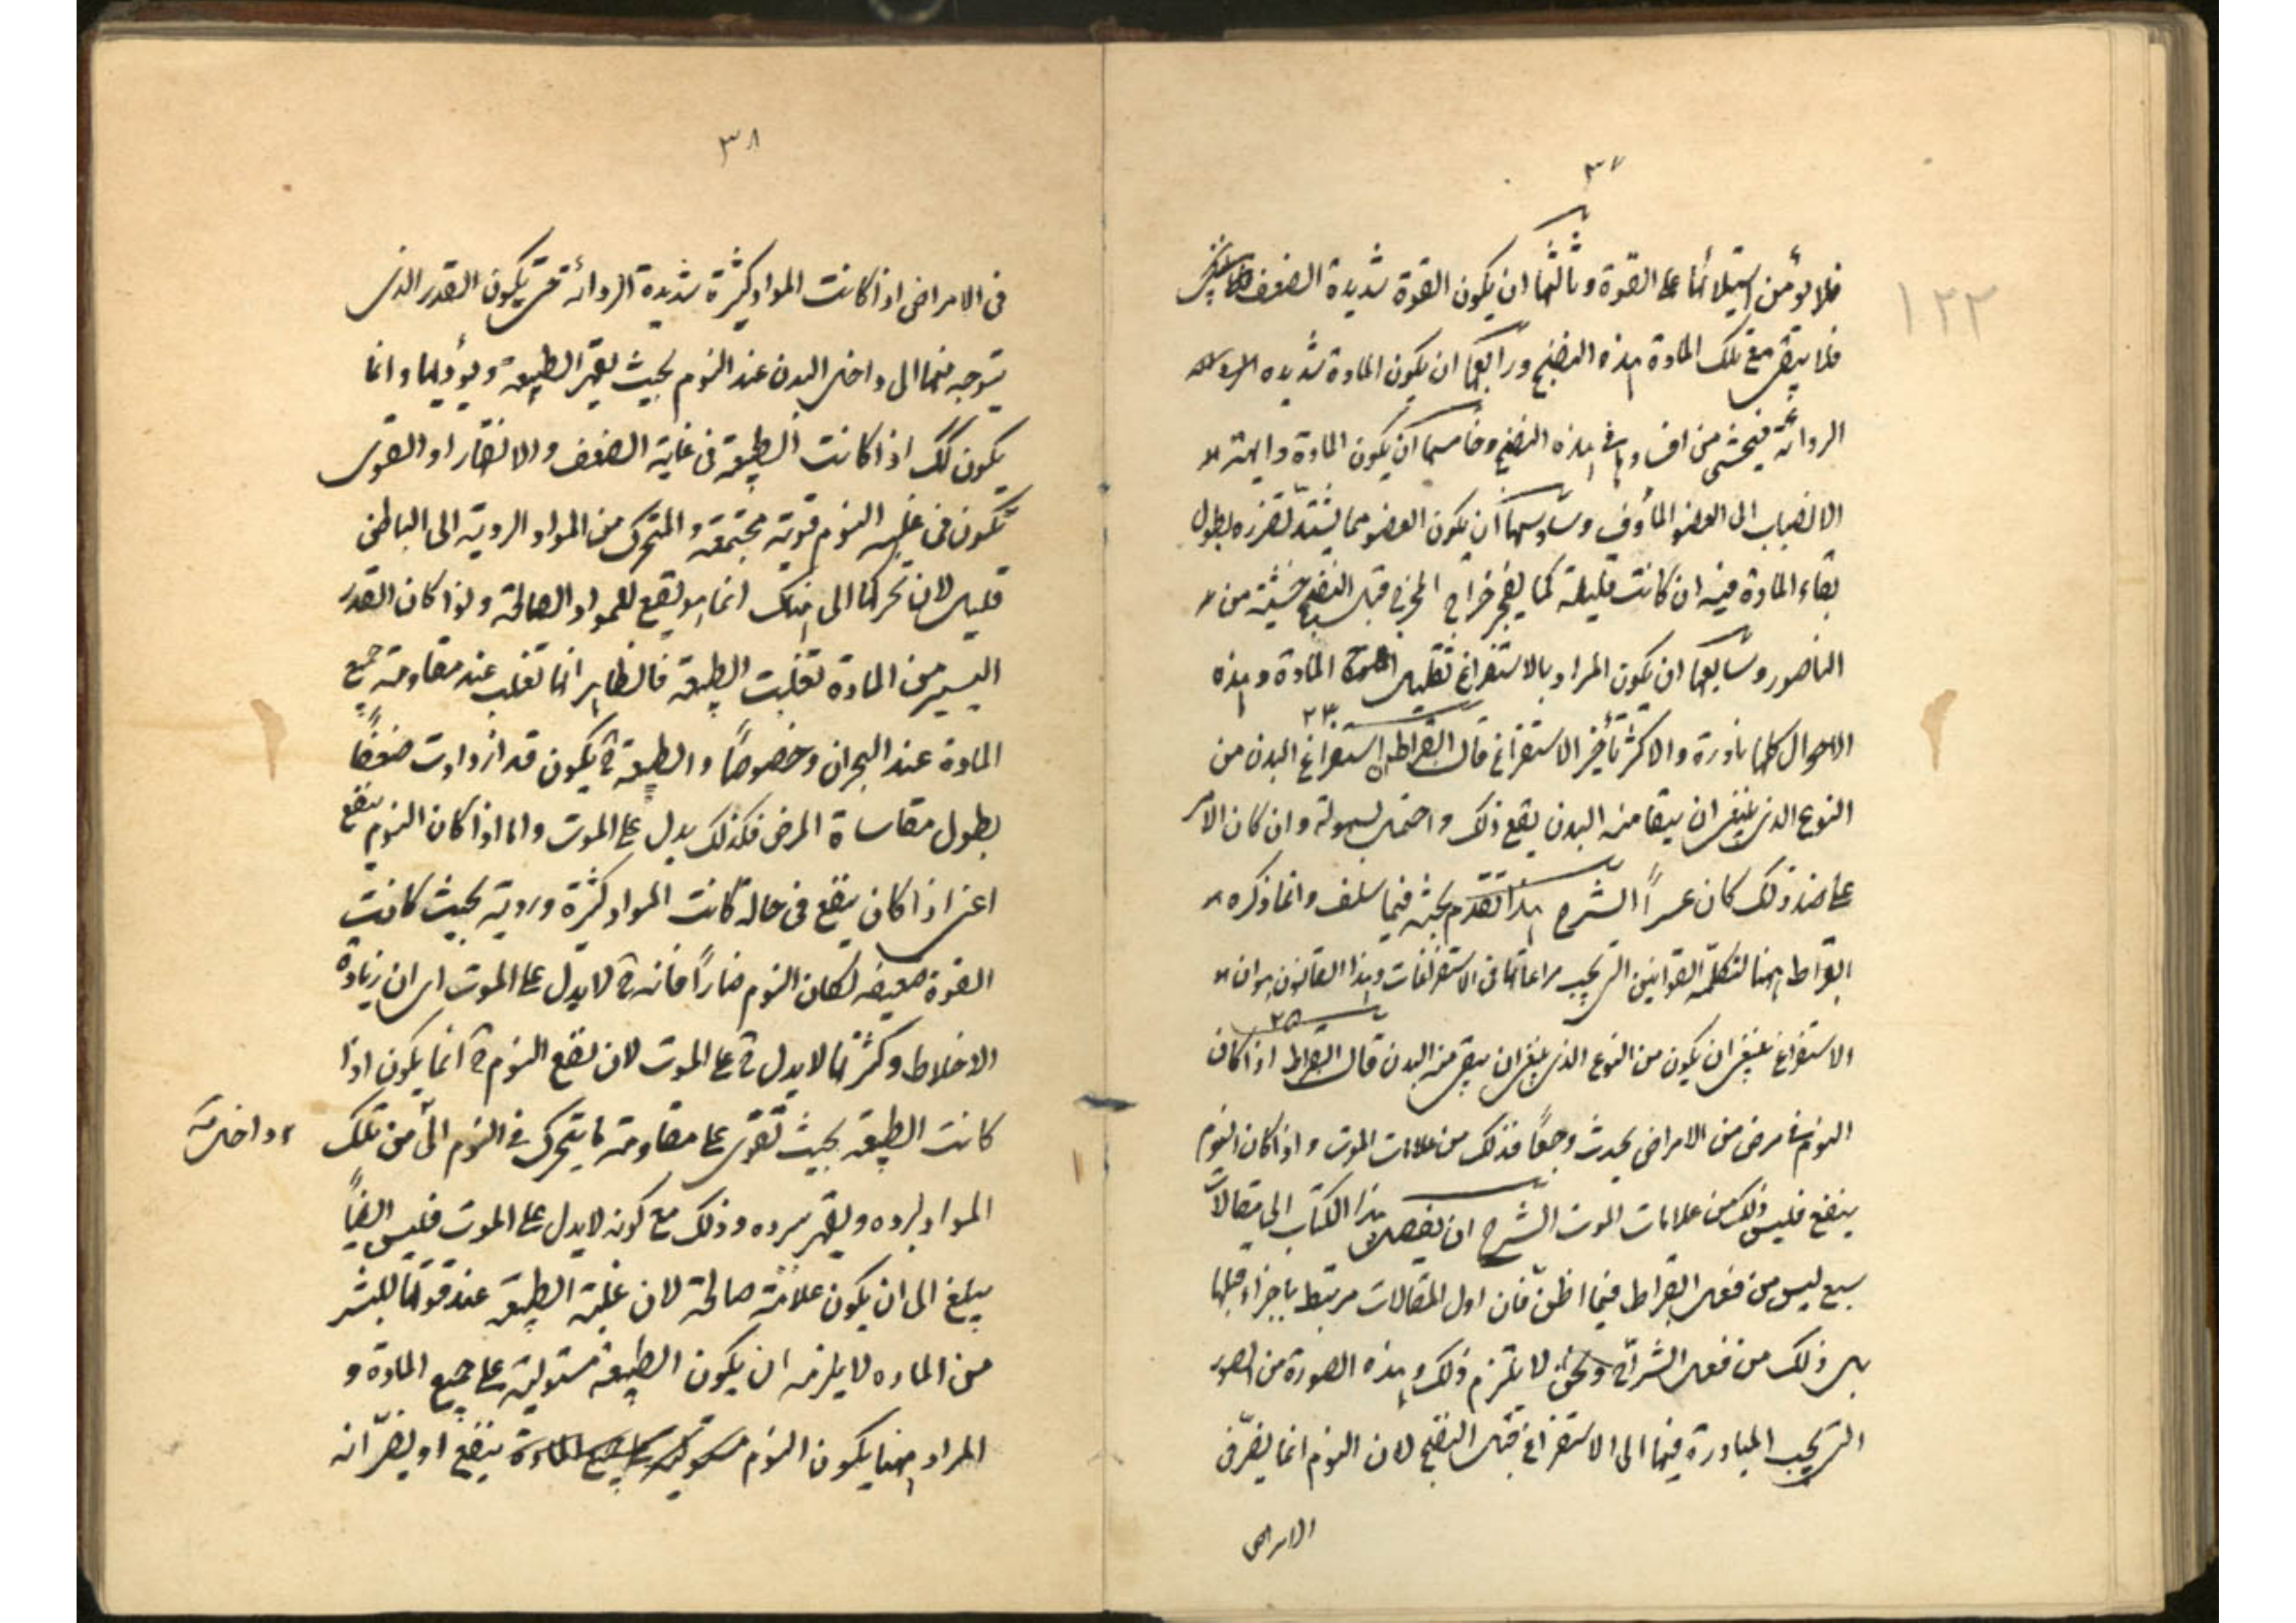 ٣٧
١٢٢
فلا يؤمن استيلائها على القوة وثالثها ان يكون القوة شديدة الضعف
فلا يبقى مع تلك المادة هذه النضج ورابعها ان يكون المادة شديده
الردائة فيخشى من افسادها في هذه النضج وخامسها ان يكون المادة دايمة
الانصباب الى العضو المأوف وسادسها ان يكون العضو مما يشتد تضرره بطول
بقاء المادة فيه ان كانت قليلة كما يفجر خراج قبل النضج خشية من
الناصور وسابعها ان يكون المراد بالاستفراغ تقليل المادة وهذه
الاحوال كلها نادرة والاكثر تأخير الاستفراغ قال ابقراط ان استفراغ البدن من
٢٣
النوع الذي ينبغي ان ينقا منه البدن نفع ذلك واحتمل بسهولة وان كان الامر
على ضد ذلك كان عسراً الشرح هذا تقدم بحثه فيما سلف وانما ذكره
ابقراط ههنا لتكملة القوانين التي يجب مراعاتها في الاستفراغات وهذا القانون هو ان
الاستفراغ ينبغي ان يكون من النوع الذي ينبغي ان ينقى منه البدن قال ابقراط اذا كان
٢٥
النوم في مرض من الامراض يحدث وجعاً فذلك من علامات الموت واذا كان النوم
ينفع فليس ذلك من علامات الموت الشرح ان تفصيل هذا الكتاب الى مقالات
سبع ليس من فعل ابقراط فيما اظن فان اول المقالات مرتبط باجزاء قبلها
بل ذلك من فعل الشراح ونحن لا نلتزم ذلك وهذه الصورة من الصور
التي يجب المبادرة فيها الى الاستفراغ قبل النضج لان النوم انما يضر في
الامراض
٣٨
في الامراض اذا كانت المواد كثيرة شديدة الردائة حتى يكون القدر الذي
يتوجه منها الى داخل البدن عند النوم بحيث يقهر الطبيعة ويؤذيها وانما
يكون كك اذا كانت الطبيعة في غاية الضعف والا فالقوى
تكون في غلبة النوم قوية مجتمعة والمتحرك من المواد الردية الى الباطن
قليل لان تحركها الى هناك انما هو تبع للمواد الصالحة ولو كان القدر
اليسير من المادة تغلبت الطبيعة فالظاهر انها تغلب عند مقاومة جميع
المادة عند البحران وخصوصاً والطبيعة ح يكون قد ازدادت ضعفاً
بطول مقاساة المرض فكذلك يدل على الموت واما اذا كان النوم ينفع
اعني اذا كان ينفع في حالة كانت المواد كثيرة وردية بحيث كانت
القوة ضعيفه لكان النوم ضاراً فانه ح لا يدل على الموت اي ان زيادة
الاخلاط وكثرتها لا يدل ح على الموت لان نفع النوم ح انما يكون اذا
كانت الطبيعة بحيث تقوى على مقاومة ما يتحرك في النوم الى من تلك
داخله
المواد وذلك مع كونه لا يدل على الموت فليس ايضاً
يبلغ الى ان يكون علامة صالحة لان غلبة الطبيعة عند قوتها لليسير
من الماده لا يلزمه ان يكون الطبيعة مستولية على جميع المادة و
المراد ههنا يكون النوم ينفع او يضر انه